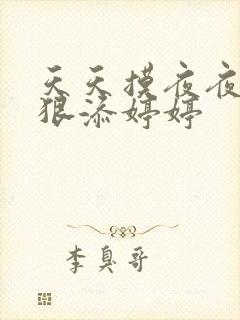 天天摸夜夜
狠添婷婷
李臭哥